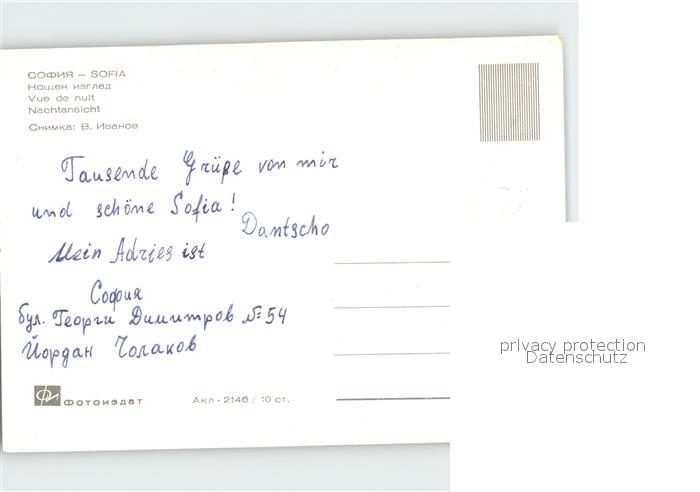 СОФИЯ – SOFIA
Нощен изглед
Vue de nuit
Nachtansicht
Снимка: В. Иванов
Tausende Grüße von mir
und schöne Sofia!
Dantscho
Mein Adries ist
София
бул. Георги Димитров № 54
Йордан Чолаков
Фотоиздат
Акл - 2146 / 10 ст.
privacy protection
Datenschutz